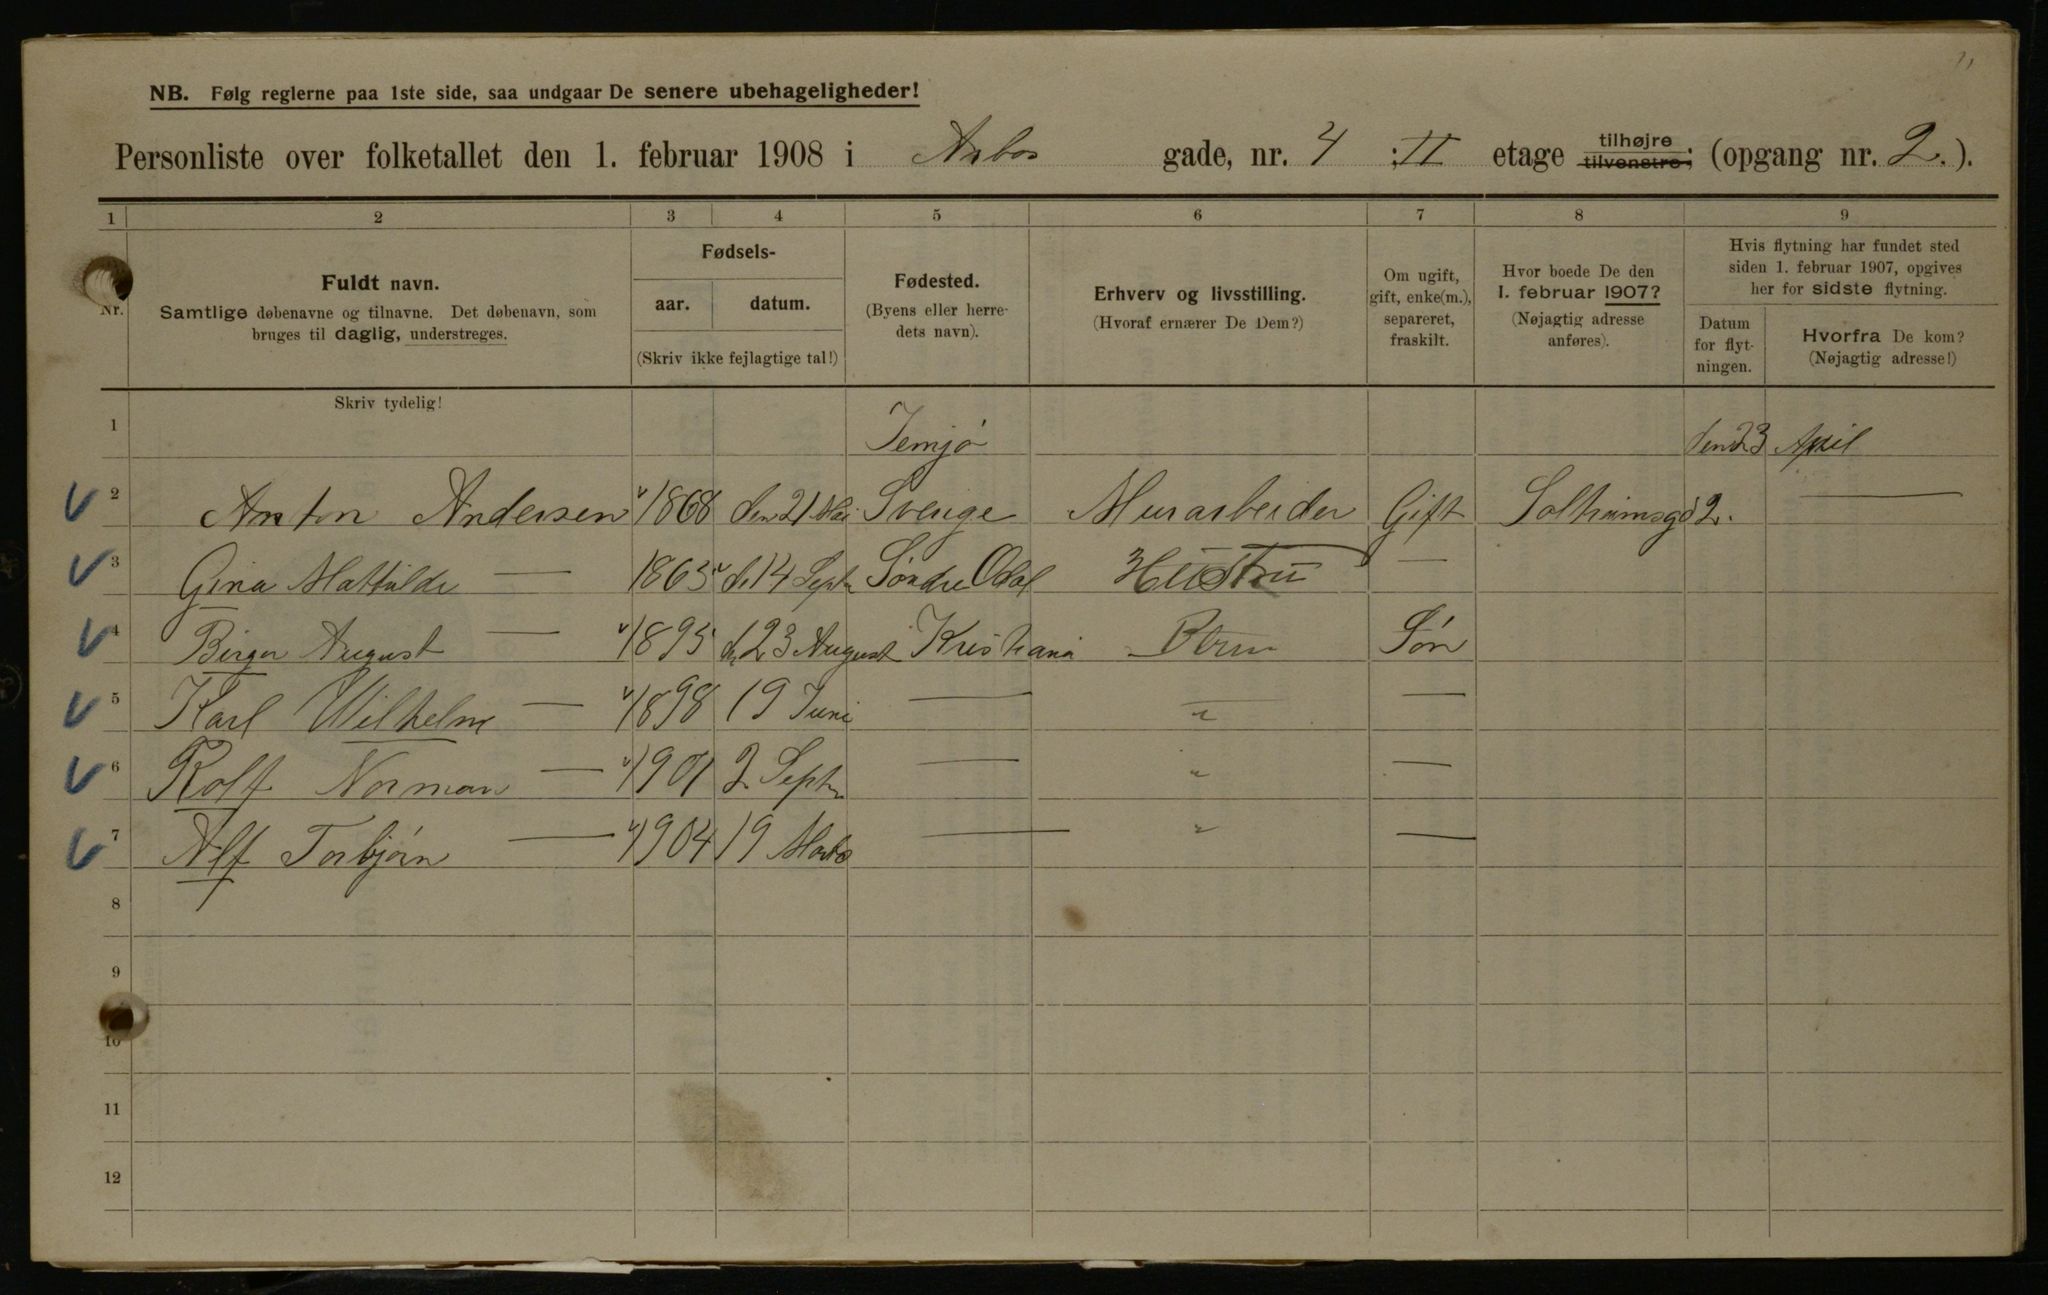 NB. Følg reglerne paa 1ste side, saa undgaar De senere ubehageligheder!
Personliste over folketallet den 1. februar 1908 i Arbos gade, nr. 4 : II etage tilhøjre tilvenstre; (opgang nr. 2.).
1 2 3 4 5 6 7 8 9
Nr.
Fuldt navn.
Samtlige døbenavne og tilnavne. Det døbenavn, som
bruges til daglig, understreges.
Fødsels-
aar. datum.
(Skriv ikke fejlagtige tal!)
Fødested.
(Byens eller herre-
dets navn).
Erhverv og livsstilling.
(Hvoraf ernærer De Dem?)
Om ugift,
gift, enke(m.),
separeret,
fraskilt.
Hvor boede De den
1. februar 1907?
(Nøjagtig adresse
anføres).
Hvis flytning har fundet sted
siden 1. februar 1907, opgives
her for sidste flytning.
Datum
for flyt-
ningen.
Hvorfra De kom?
(Nøjagtig adresse!)
Skriv tydelig!
1 Jemjö den 23 April
2 Anton Andersen 1868 den 21 Mai Sverige Murarbeider Gift —
3 Gina Mathilde — 1865 d 14 Septr Søndre Odal Hustru —
4 Birger August — 1895 d. 23 August Kristiania Barn Søn
5 Karl Wilhelm — 1898 19 Juni — " —
6 Rolf Norman — 1901 2 Septr — " —
7 Alf Torbjørn — 1904 19 Marts — " —
8
9
10
11
12